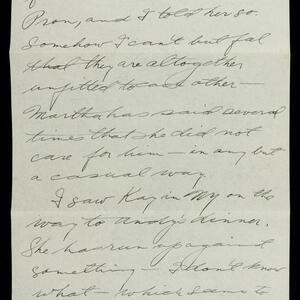 Prom, and I told her so.
Somehow I can't but feel
that they are altogether
unfitted to each other —
Martha has said several
times that she did not
care for him — in any but
a casual way.
I saw Kay in NY on the
way to Andy's dinner.
She has run up against
something — I don't know
what — which seems to